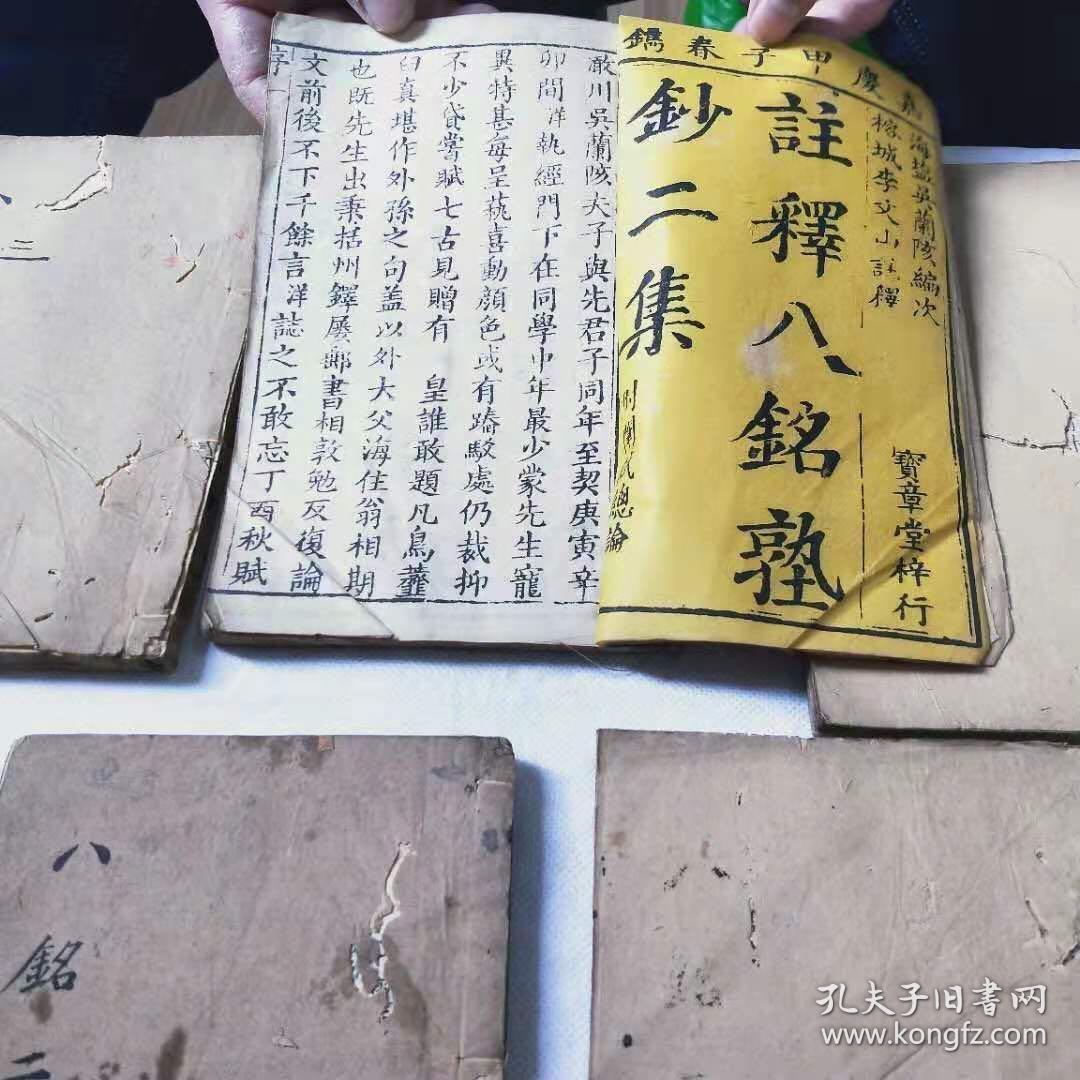 慶甲子春鐫
海塩吳蘭陔編次
榕城李文山註釋
註釋八銘塾
鈔二集
寶章堂梓行
澉川吳蘭陔夫子與先君子同年至契庚寅辛
卯間洋執經門下在同學中年最少蒙先生寵
異特甚每呈藝喜動顏色或有踳駁處仍裁抑
不少貸嘗賦七古見贈有 皇誰敢題凡鳥虀
臼真堪作外孫之句盖以外大父海住翁相期
也既先生出秉括州鐸屡郵書相敦勉反復論
文前後不下千餘言洋誌之不敢忘丁酉秋賦
序
總論
八
二
八
銘
二
孔夫子旧書网
www.kongfz.com